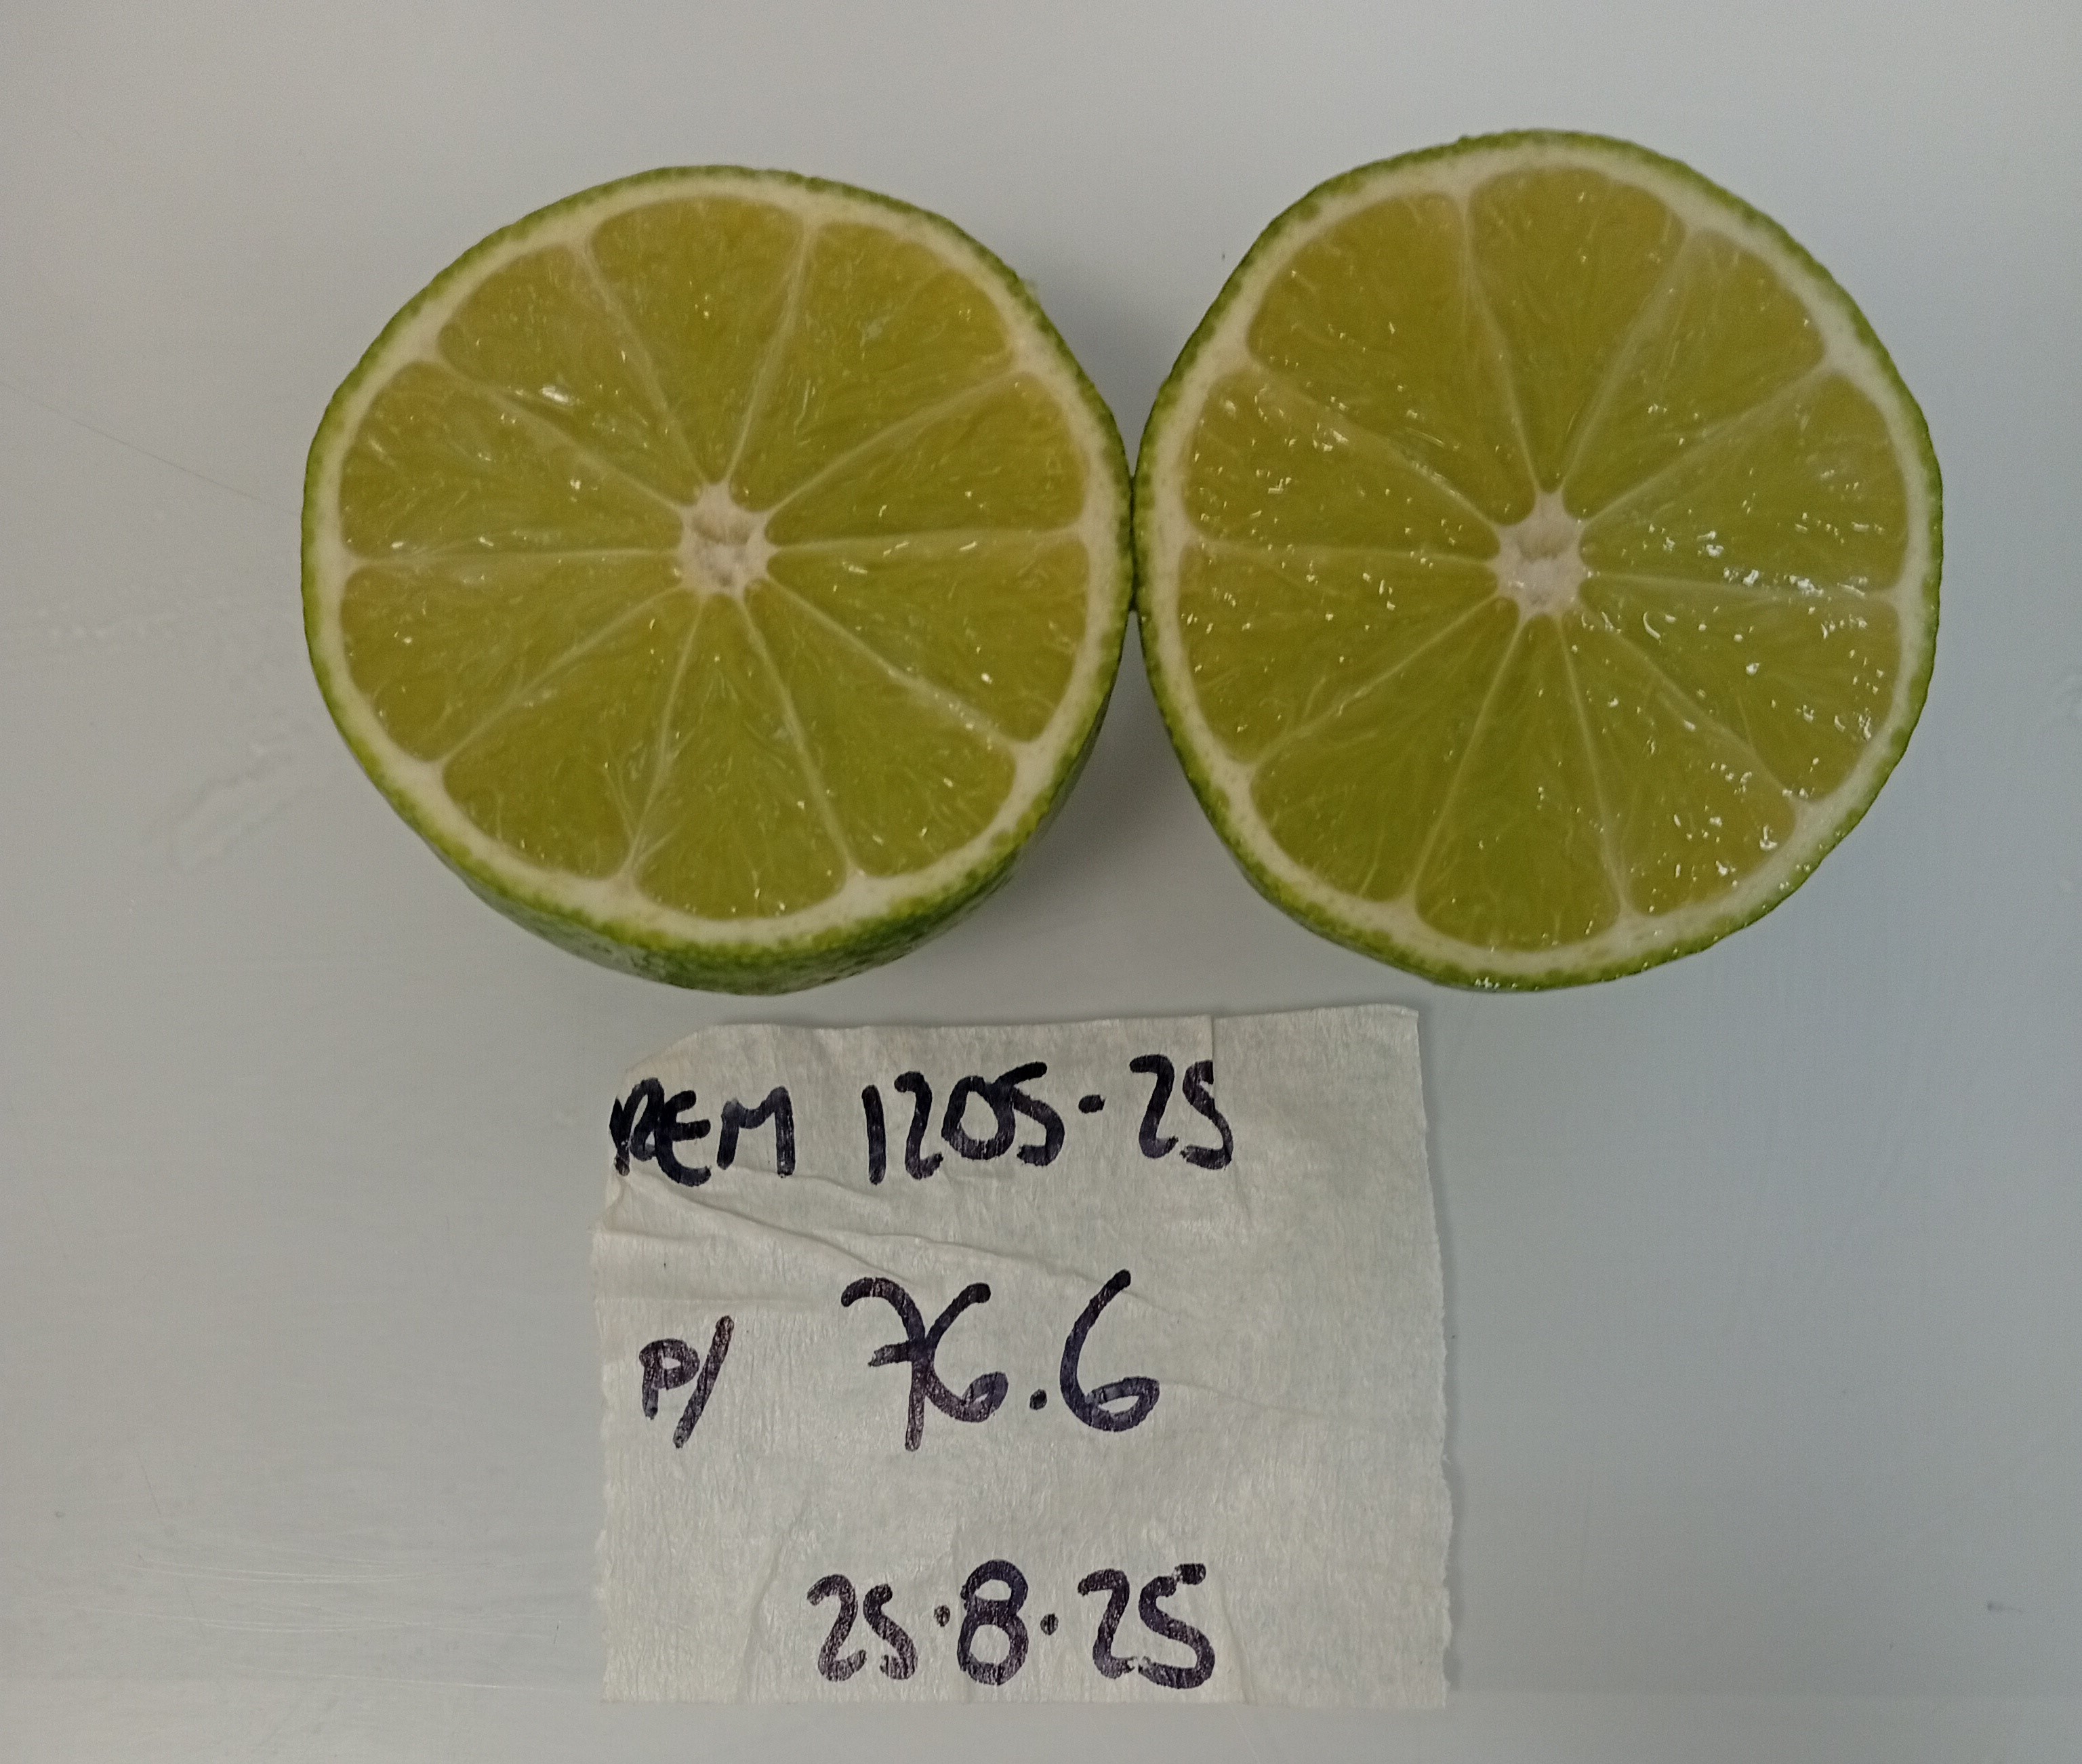 REM 1205-25
P/ 76.6
25.8.25